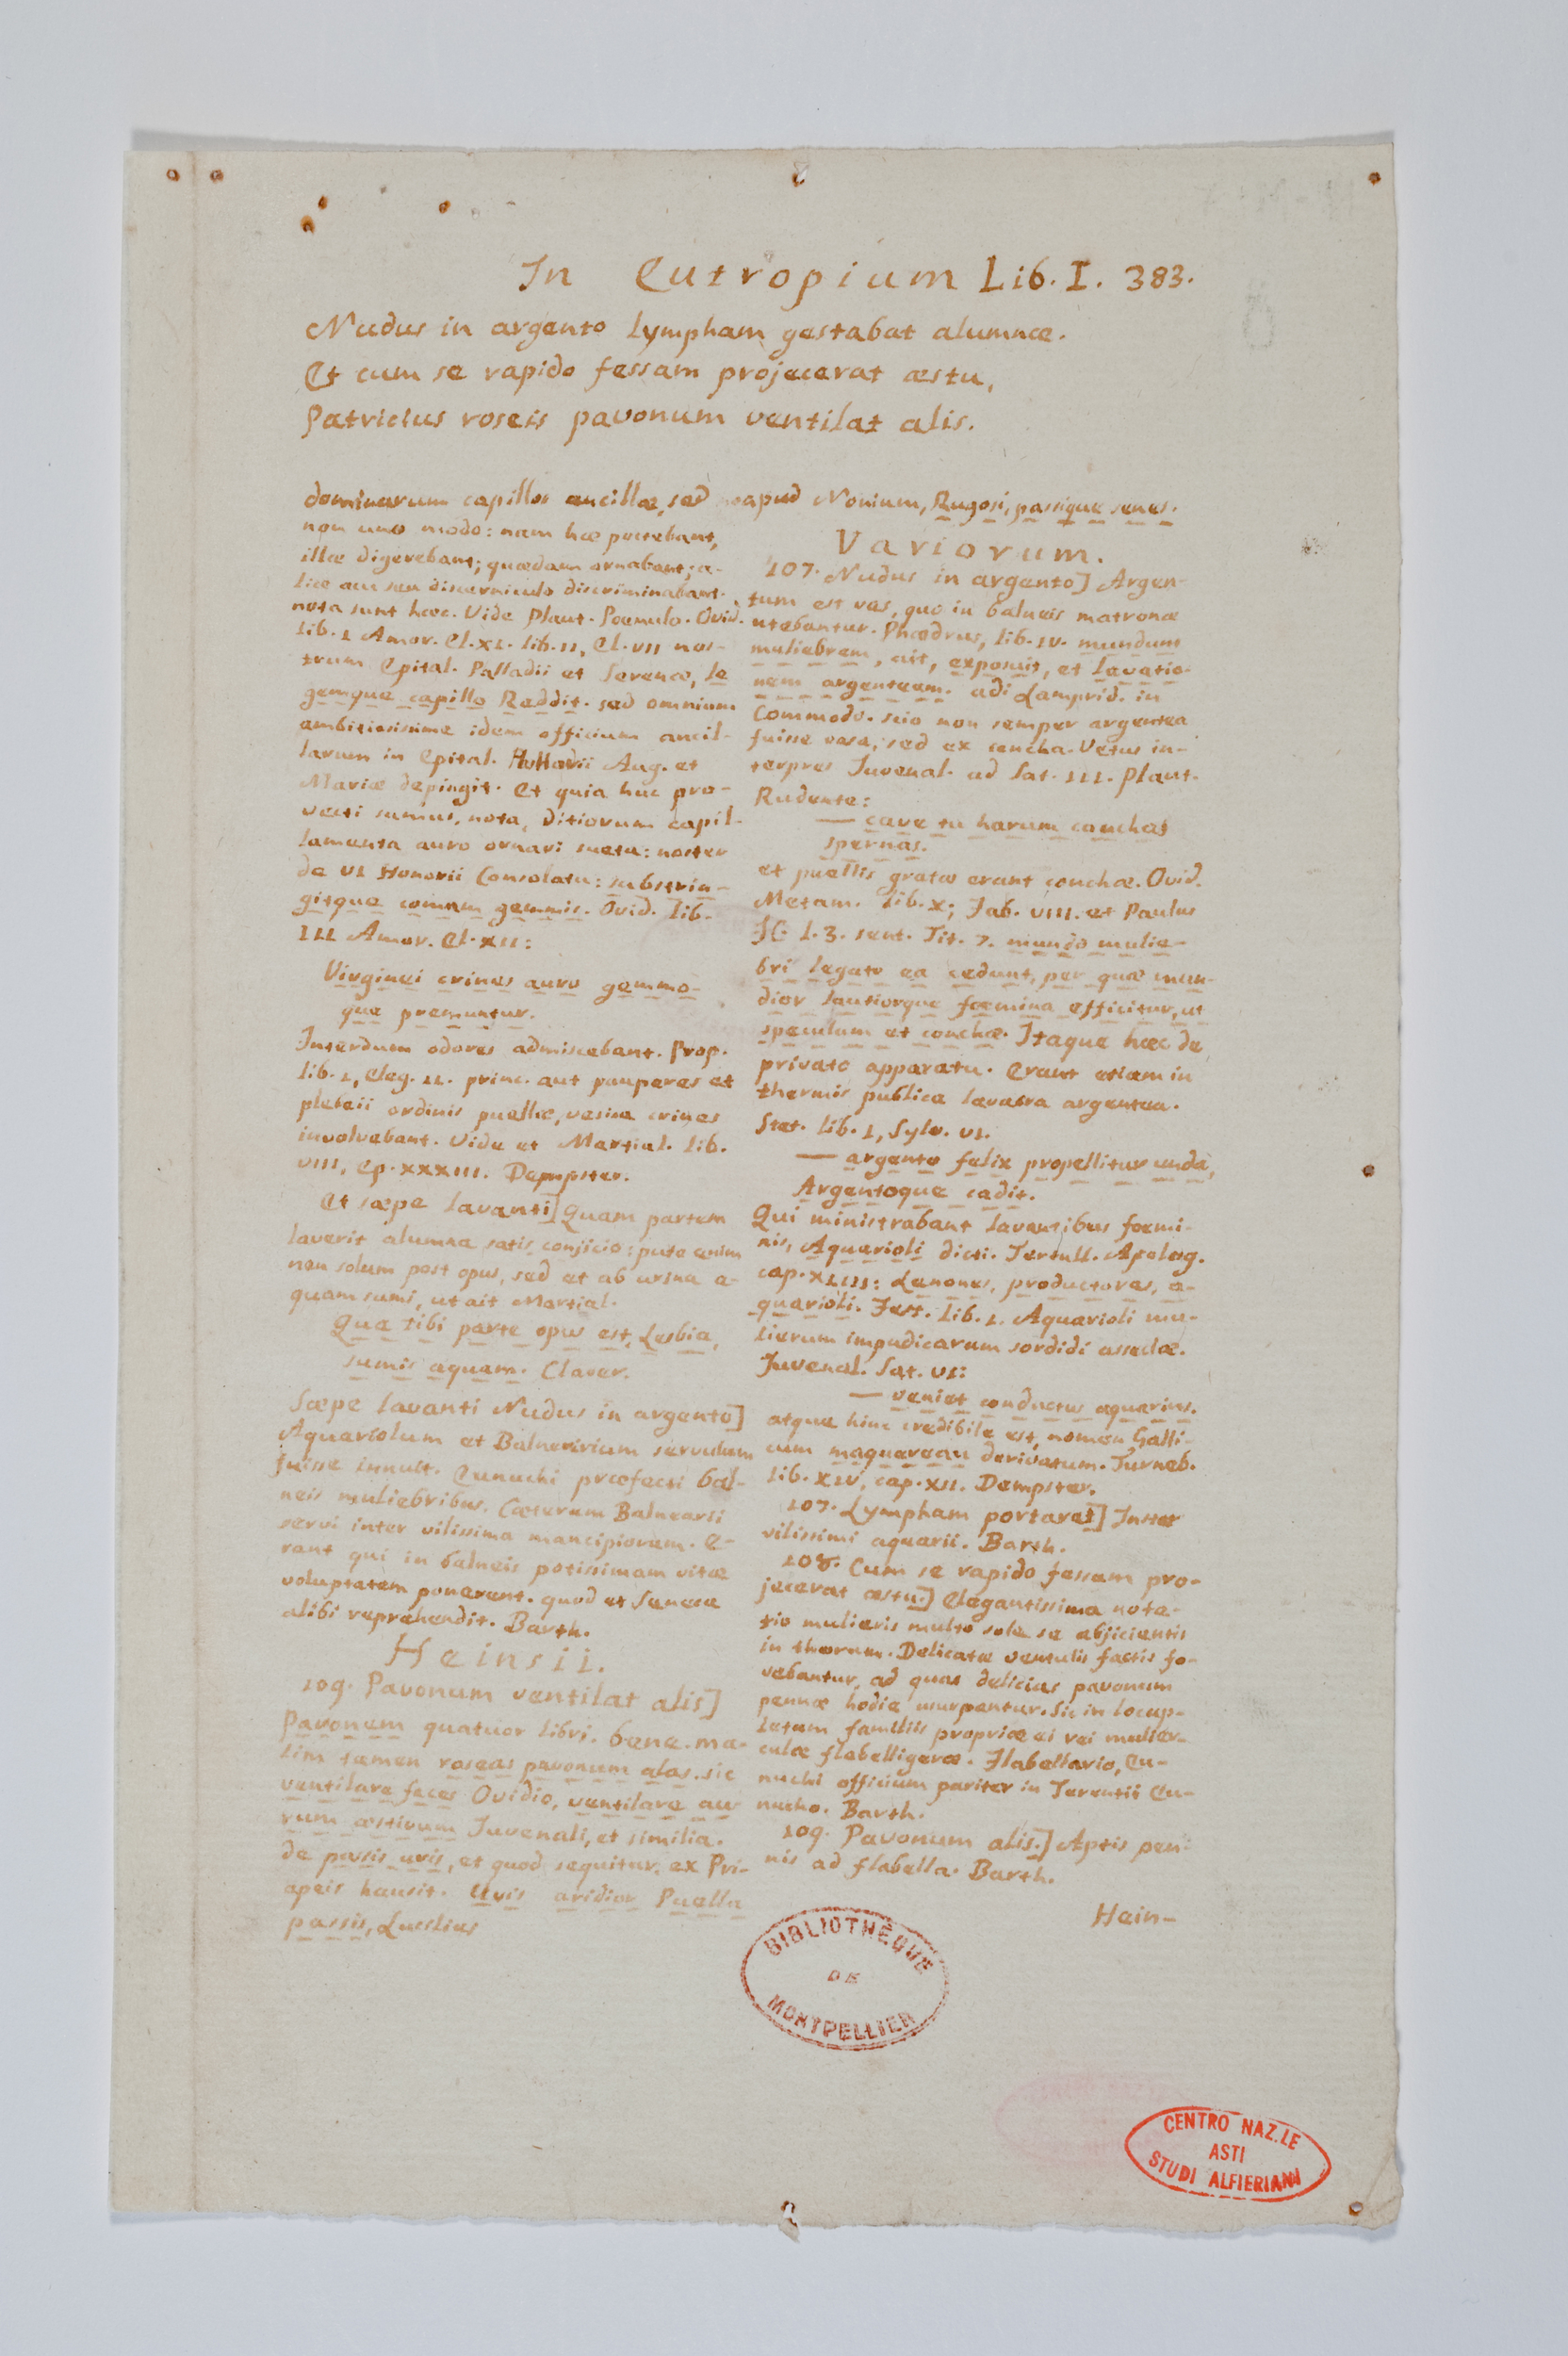 In Eutropium Lib. I. 383.
Nudus in argento lympham gestabat alumnæ.
Et cum se rapido fessam projecerat æstu,
Patricius roseis pavonum ventilat alis.
dominarum capillos ancillæ, sed
non uno modo: nam hæ pectebant,
illæ digerebant; quædam ornabant; a-
liæ acu seu discerniculo discriminabant.
nota sunt hæc. Vide Plaut. Poenulo. Ovid.
lib. I Amor. El. XI. lib. II, El. VII nos-
trum Epital. Palladii et Serenæ, le
gemque capillo Reddit. sed omnium
ambitiosissime idem officium ancil-
larum in Epital. Aug. et
Mariæ depingit. Et quia huc pro-
vecti sumus, nota, ditiorum capil-
lamenta auro ornari sueta: noster
de VI Honorii Consolatu: substrin-
gitque comam gemmis. Ovid. lib.
III Amor. El. XII:
Virginei crines auro gemmo-
que premuntur.
Interdum odores admiscebant. Prop.
lib. I, Eleg. II. princ. aut pauperes et
plebeii ordinis puellæ, vesica crines
involvebant. Vide et Martial. lib.
VIII, Ep. XXXIII. Dempster.
Et sæpe lavanti] Quam partem
laverit alumna satis conjicio: puta enim
non solum post opus, sed et ab urina a-
quam sumi, ut ait Martial.
Qua tibi parte opus est, Lesbia,
sumis aquam. Claver.
Sæpe lavanti Nudus in argento]
Aquariolum et servulum
fuisse innuit. Eunuchi præfecti bal-
neis muliebribus. Cæterum Balnearii
servi inter vilissima mancipiorum. E-
rant qui in balneis potissimam vitæ
voluptatem ponerent. quod et Seneca
alibi reprehendit. Barth.
Heinsii.
109. Pavonum ventilat alis]
Pavonum quatuor libri. bene. ma-
lim tamen roseas pavonum alas. sic
ventilare faces Ovidio, ventilare au
rum æstivum Juvenali, et similia.
de passis uvis, et quod sequitur. ex Pri-
apeis hausit. Uvis aridior Puella
passis, Lucilius
apud Nonium, Rugosi, passique senes.
Variorum.
107. Nudus in argento] Argen-
tum est vas, quo in balneis matronæ
utebantur. Phædrus, lib. IV. mundum
muliebrem, ait, exposuit, et lavatio-
nem argenteam. adi Lamprid. in
Commodo. scio non semper argentea
fuisse vasa, sed ex concha. Vetus in-
terpres Juvenal. ad Sat. III. Plaut.
Rudente:
— cave tu harum conchas
spernas.
et puellis gratæ erant conchæ. Ovid.
Metam. lib. X; Fab. VIII. et Paulus
JC. l. 3. sent. Tit. 7. mundo mulie-
bri legato ea cedunt, per quæ mun-
dior lautiorque foemina efficitur, ut
speculum et conchæ. Itaque hæc de
privato apparatu. Erant etiam in
thermis publica lavacra argentea.
Stat. lib. I, Sylv. VI.
— argento felix propellitur unda,
Argentoque cadit.
Qui ministrabant lavantibus foemi-
nis, Aquarioli dicti. Tertull. Apolog.
cap. XLIII: Lenones, productores, a-
quarioli. Fest. lib. I. Aquarioli mu-
lierum impudicarum sordidi asseclæ.
Juvenal. Sat. VI:
— veniet conductus aquarius.
atque hinc credibile est, nomen Galli-
cum maquereau derivatum. Turneb.
lib. XIV, cap. XII. Dempster.
107. Lympham portaret] Inter
vilissimi aquarii. Barth.
108. Cum se rapido fessam pro-
jecerat æstu.] Elegantissima nota-
tio mulieris multo sole se abjicientis
in thorum. Delicatæ ventulis factis fo-
vebantur, ad quas delicias pavonum
pennæ hodie usurpantur. Sic in locup-
letum familiis propriæ ei rei mulier-
culæ flabelligeræ. Flabellario, Eu-
nuchi officium pariter in Terentii Eu-
nucho. Barth.
109. Pavonum alis.] Aptis pen-
nis ad flabella. Barth.
Hein-
BIBLIOTHÈQUE
DE
MONTPELLIER
CENTRO NAZ.LE
ASTI
STUDI ALFIERIANI